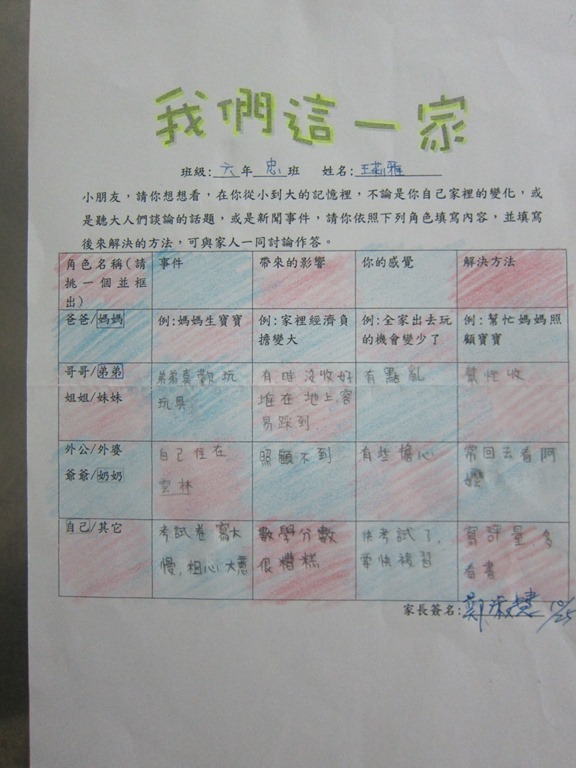 我們這一家
班級：六年忠班 姓名：王瑀雅
小朋友，請你想想看，在你從小到大的記憶裡，不論是你自己家裡的變化，或
是聽大人們談論的話題，或是新聞事件，請你依照下列角色填寫內容，並填寫
後來解決的方法，可與家人一同討論作答。
角色名稱(請
挑一個並框
出)
事件
帶來的影響
你的感覺
解決方法
爸爸/媽媽
例：媽媽生寶寶
例：家裡經濟負
擔變大
例：全家出去玩
的機會變少了
例：幫忙媽媽照
顧寶寶
哥哥/弟弟
姐姐/妹妹
弟弟喜歡玩
玩具
有時沒收好
堆在地上，容
易踩到
有點亂
幫忙收
外公/外婆
爺爺/奶奶
自己住在
雲林
照顧不到
有些擔心
常回去看阿
嬤
自己/其它
考試卷寫太
慢，粗心大意
數學分數
很糟糕
快考試了，
要快複習
寫評量，多
看書
家長簽名： 10/25